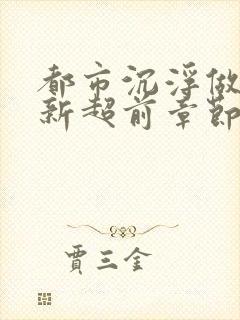 都市沉浮做
新超前章節
賈三金